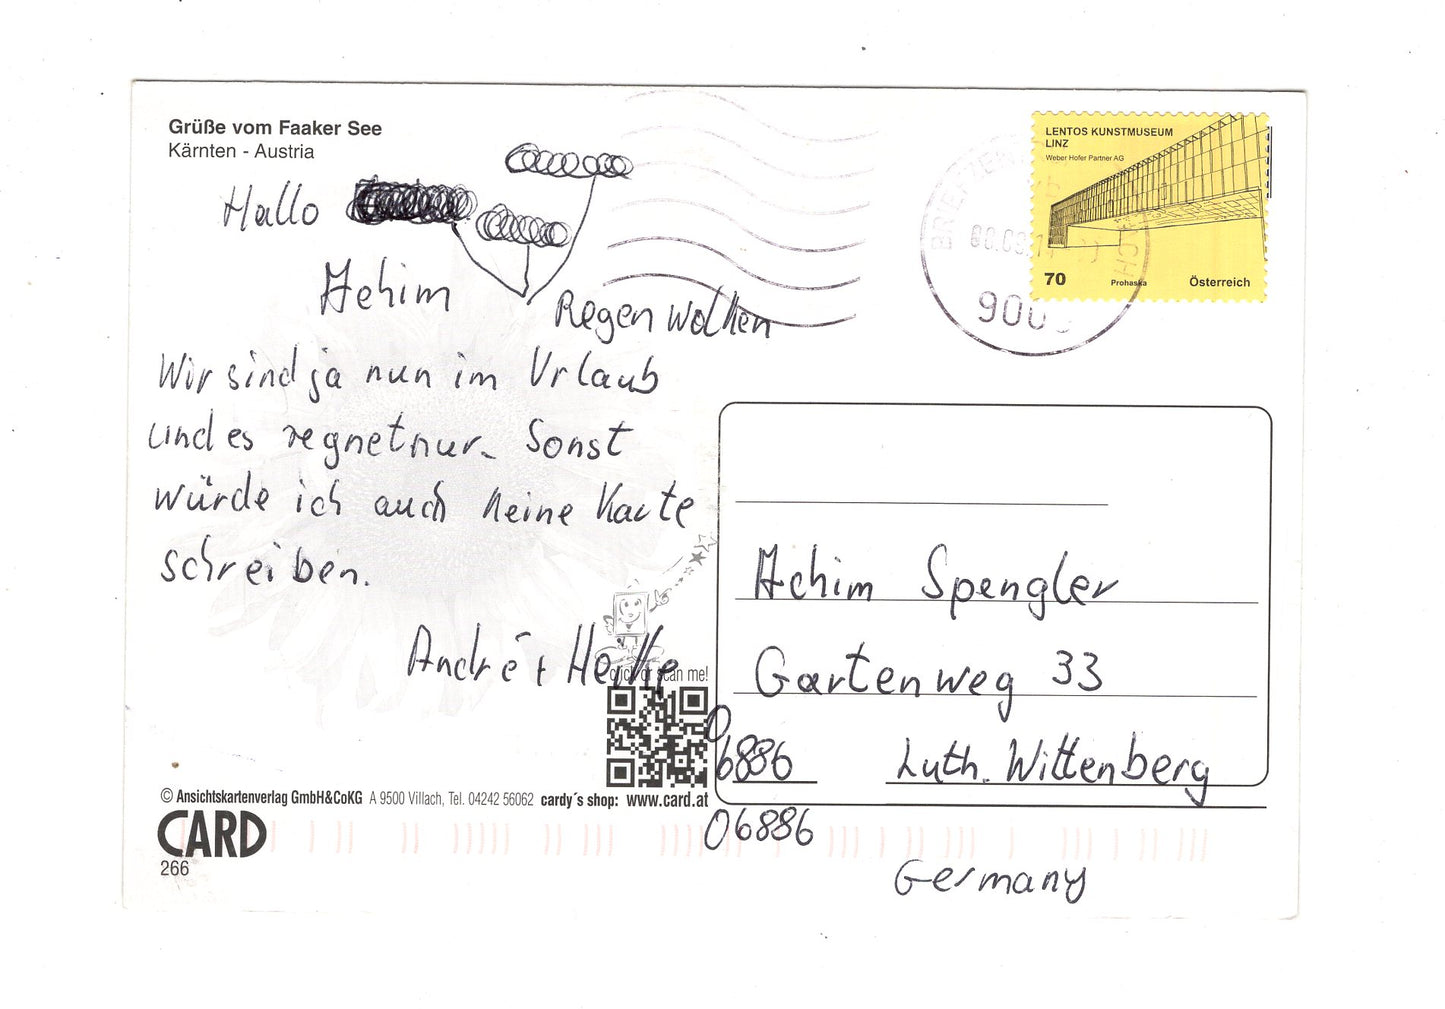 Grüße vom Faaker See
Kärnten - Austria
Hallo
Achim
Regen wolken
Wir sind ja nun im Urlaub
und es regnet nur. Sonst
würde ich auch keine Karte
schreiben.
André + Heike
click or scan me!
© Ansichtskartenverlag GmbH&CoKG A 9500 Villach, Tel. 04242 56062 cardy´s shop: www.card.at
CARD
266
LENTOS KUNSTMUSEUM
LINZ
Weber Hofer Partner AG
70
Prohaska
Österreich
Achim Spengler
Gartenweg 33
06886 Luth. Wittenberg
06886
Germany